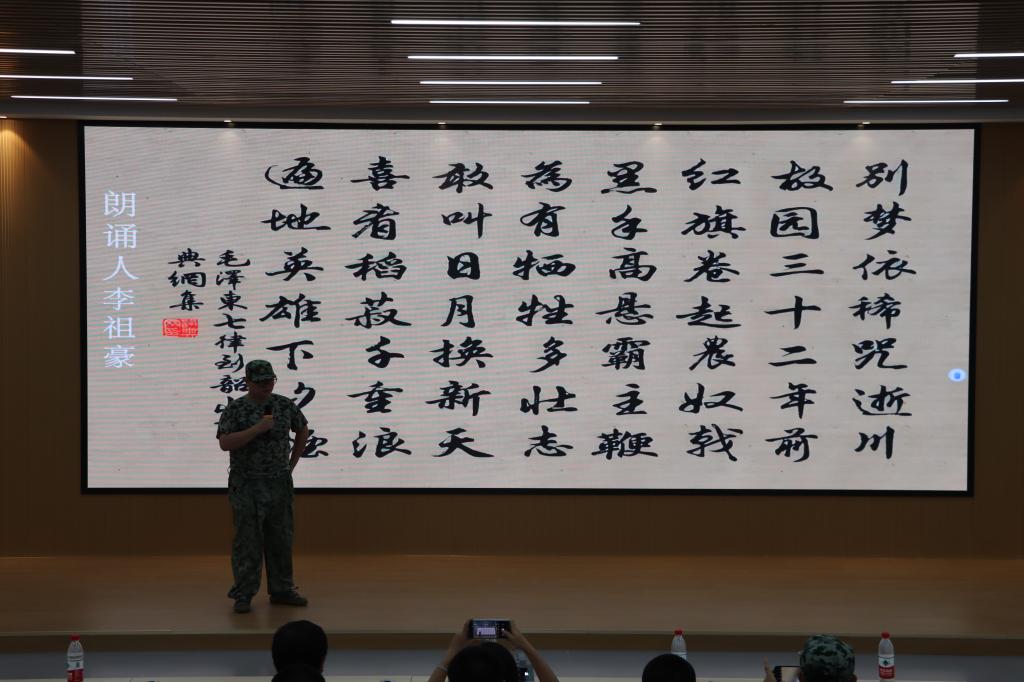 别梦依稀咒逝川
故园三十二年前
红旗卷起農奴戟
黑手高悬霸主鞭
為有牺牲多壮志
敢叫日月换新天
喜看稻菽千重浪
遍地英雄下夕
毛澤東七律到韶山
典網集
朗诵人李祖豪